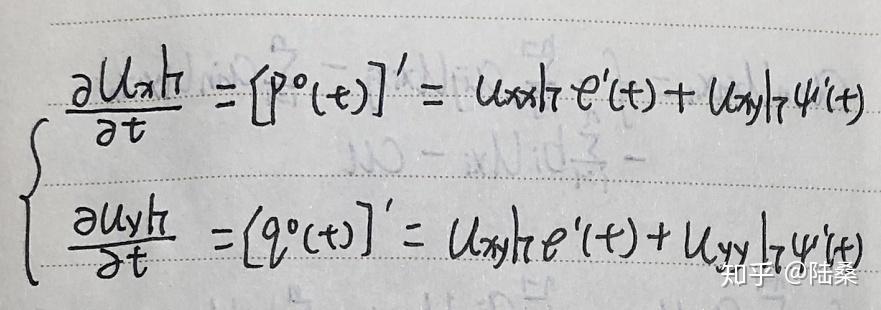 ∂Ux|Γ/∂t = [p⁰(t)]' = Uxx|Γ φ'(t) + Uxy|Γ ψ'(t)
∂Uy|Γ/∂t = [q⁰(t)]' = Uxy|Γ φ'(t) + Uyy|Γ ψ'(t)
知乎 @陆桑